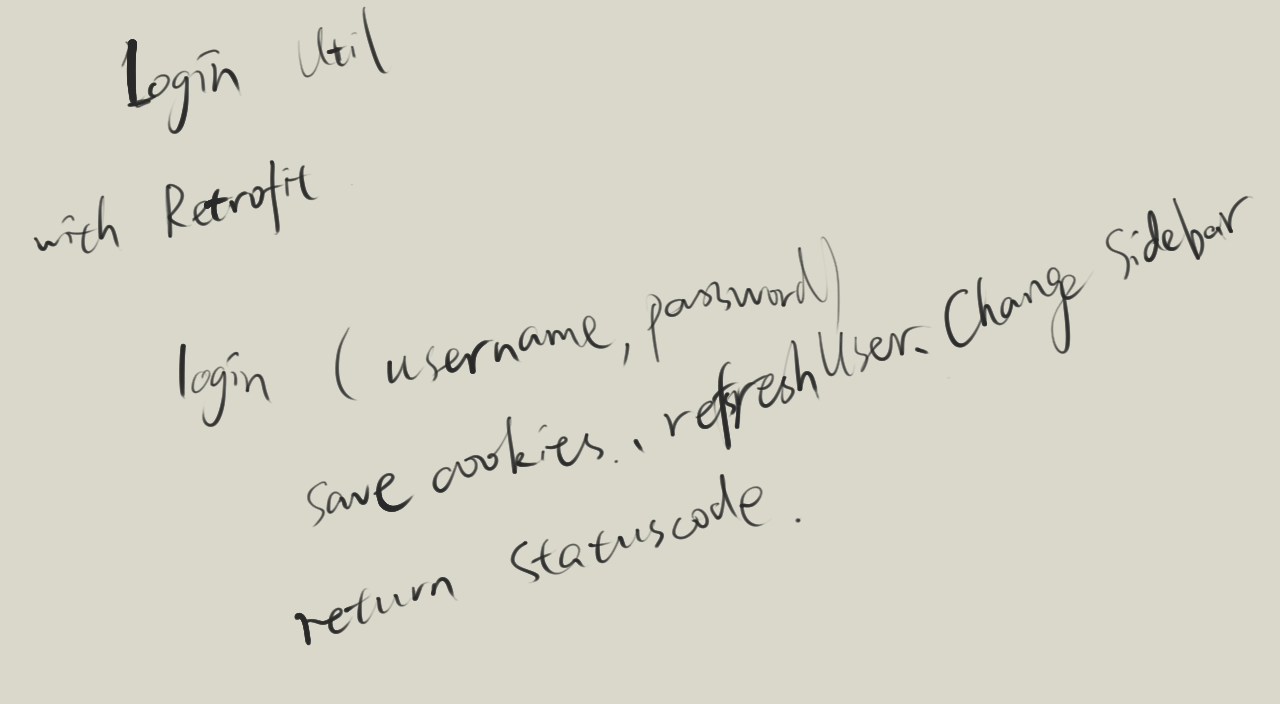 Login Util
with Retrofit
login (username, password)
save cookies、refreshUser、Change Sidebar
return Statuscode.